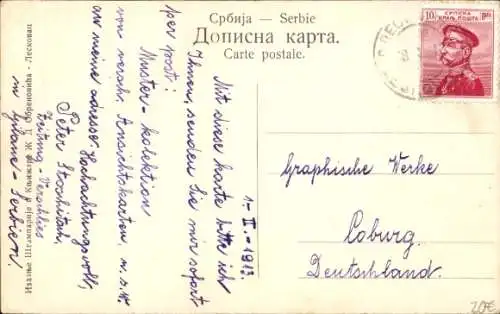 Србија — Serbie
Дописна карта.
Carte postale.
СРПСКА
КРАЉ. ПОШТА
10
Graphische Werke
Coburg.
Deutschland.
1-II.-1913.
Mit diese karte bitte ich
Ihnen, senden Sie mir sofort
per post:
Muster-kolektion
von versch. Ansichtskarten, u.s.w.
an meine adresse. Hochachtungsvoll,
Peter
Zeitung
in Gilane-Serbien.
Издање Штампарије и Књижаре Ж. Д. Обреновића - Лесковац
20€